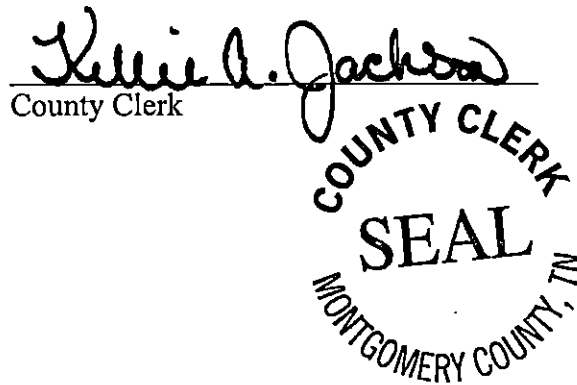 Kellie A. Jackson
County Clerk
COUNTY CLERK
SEAL
MONTGOMERY COUNTY, TN